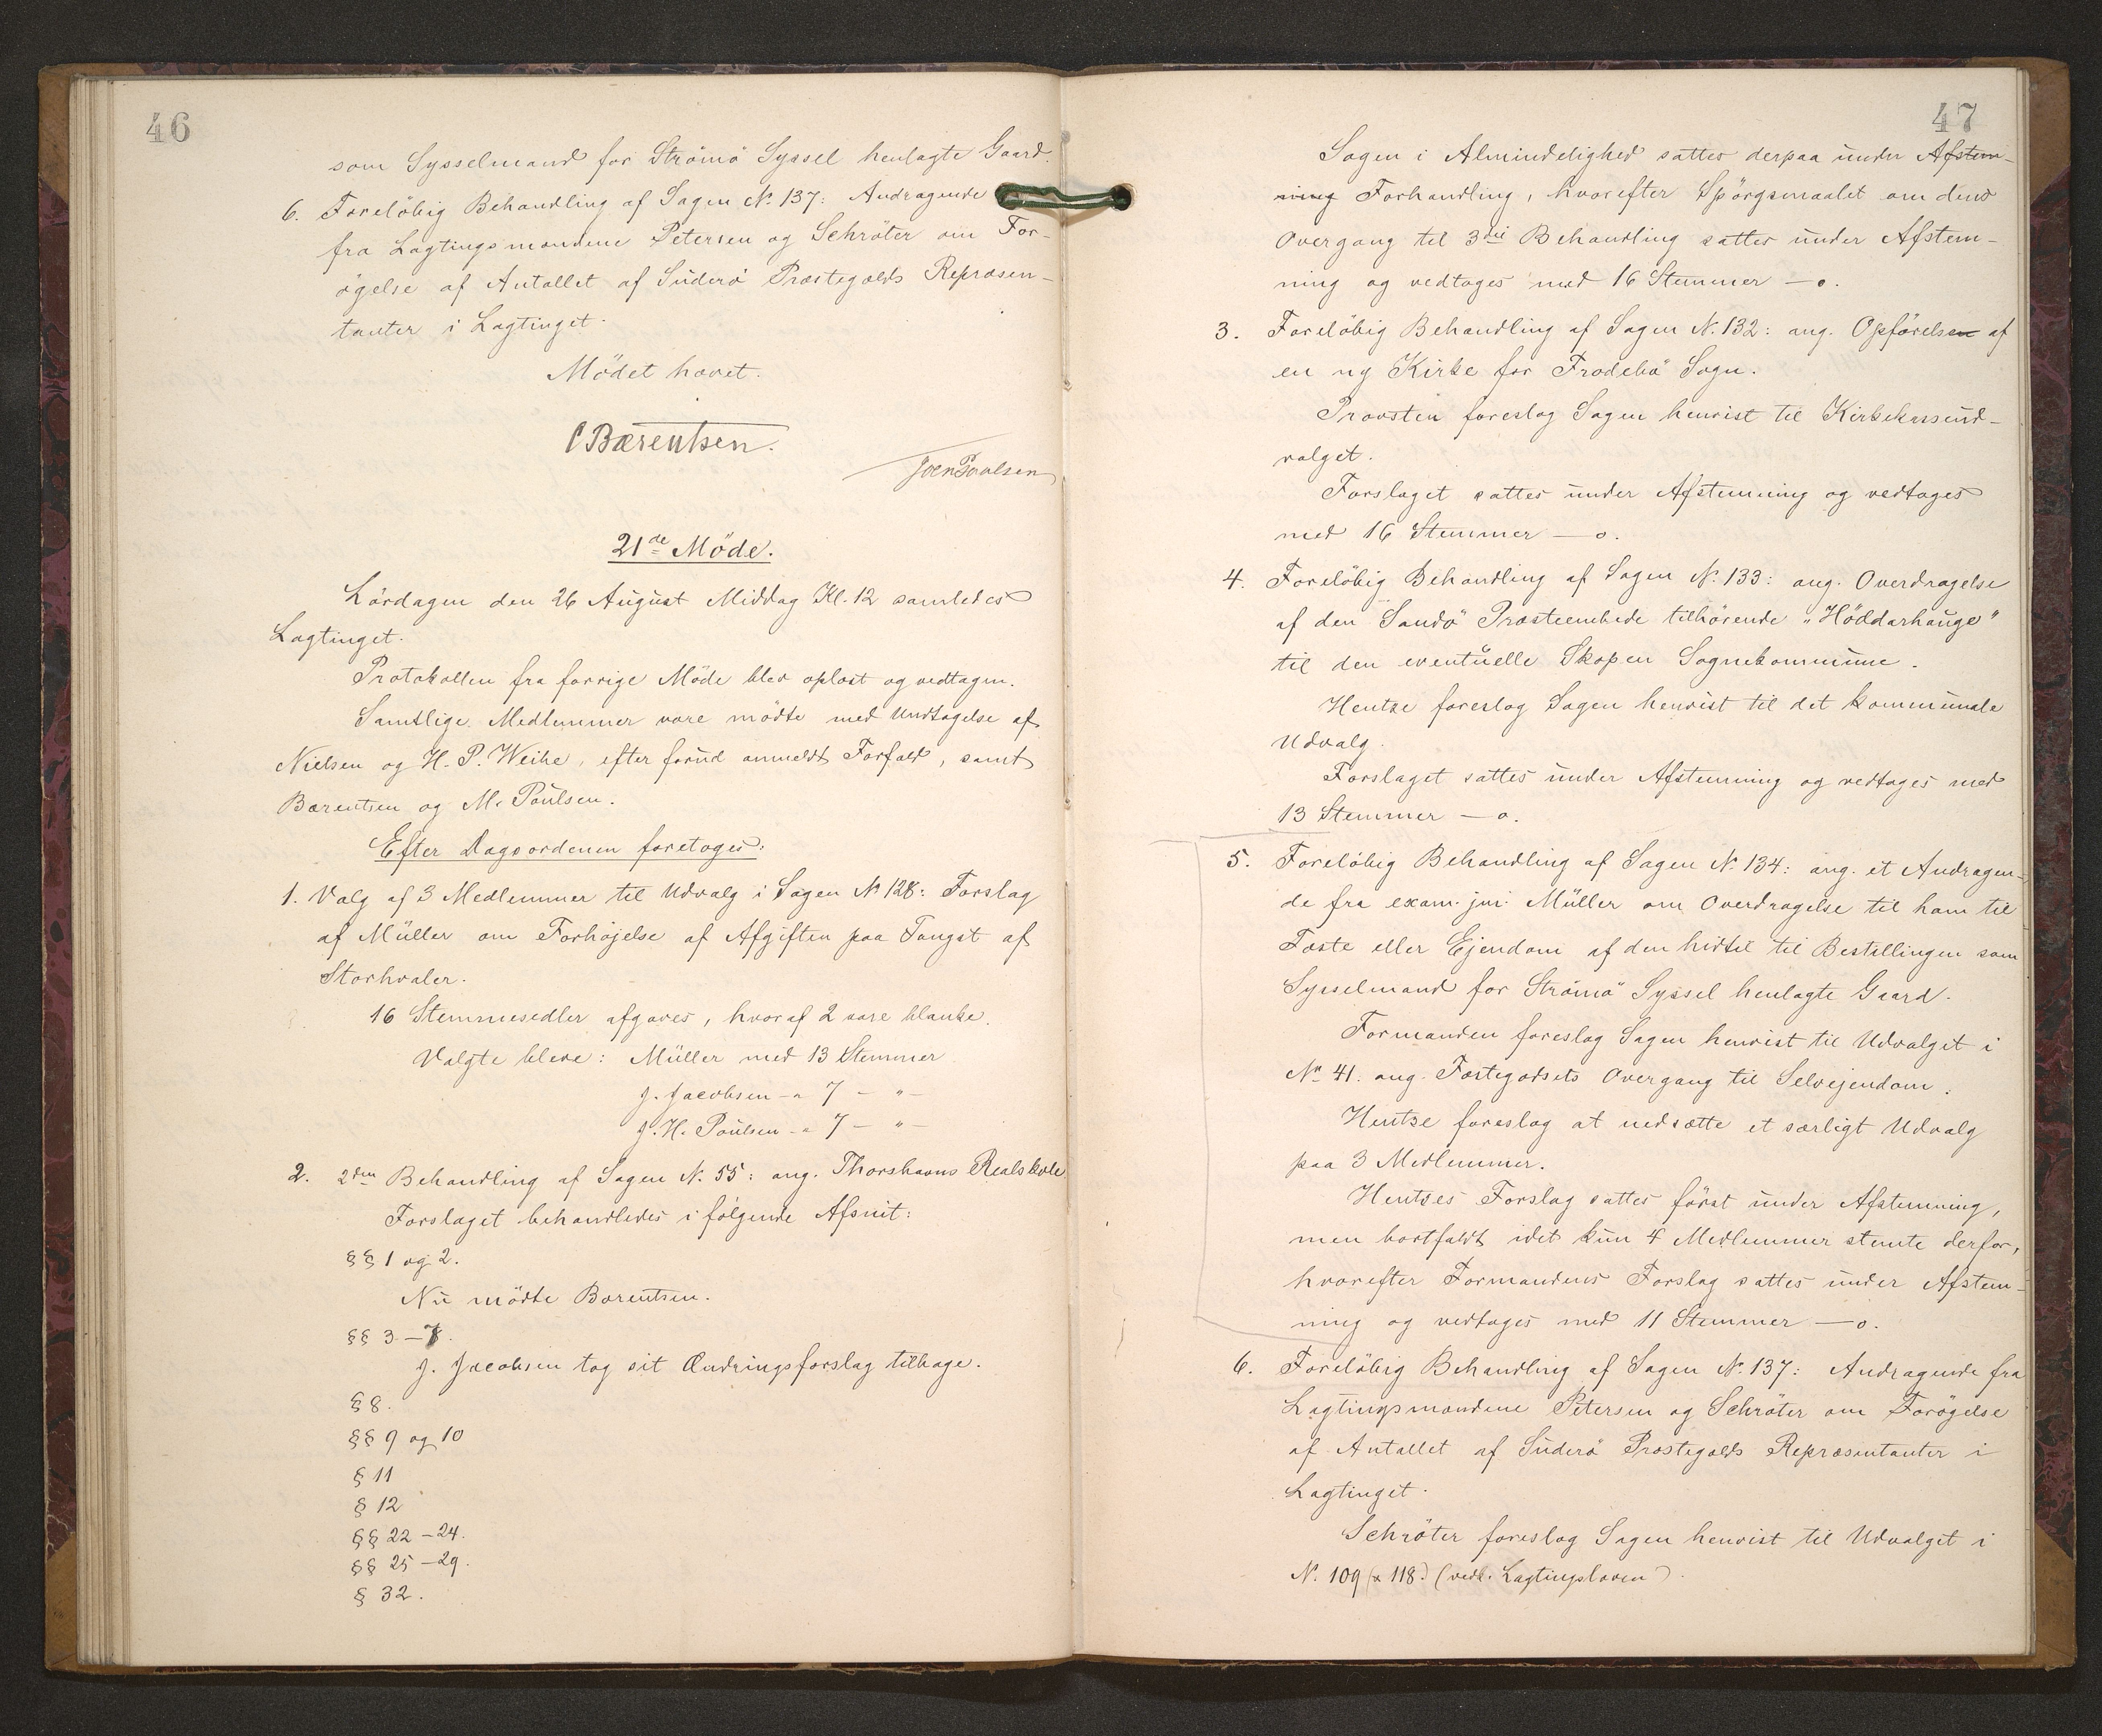 46
som Sysselmand for Strömö Syssel henlagte Gaard.
6. Forelöbig Behandling af Sagen N. 137: Andragende
fra Lagtingsmændene Petersen og Schröter om For-
ögelse af Antallet af Suderö Præstegælds Repræsen-
tanter i Lagtinget.
Mödet hævet.
C Bærentsen.
Joen Poulsen
21de Möde.
Lördagen den 26 August Middag Kl. 12 samledes
Lagtinget.
Protokollen fra forrige Möde blev oplæst og vedtagen.
Samtlige Medlemmer vare mödte med Undtagelse af
Nielsen og H. P. Weihe, efter forud anmeldt Forfald, samt
Bærentsen og M. Poulsen.
Efter Dagsordenen foretoges:
1. Valg af 3 Medlemmer til Udvalg i Sagen N. 128: Forslag
af Müller om Forhöjelse af Afgiften paa Fangst af
Storhvaler.
16 Stemmesedler afgaves, hvoraf 2 vare blanke.
Valgte bleve: Müller med 13 Stemmer
J. Jacobsen - " 7 - " -
J. H. Poulsen - " 7 - " -
2. 2den Behandling af Sagen N. 55: ang. Thorshavns Realskole.
Forslaget behandledes i fölgende Afsnit:
§§ 1 og 2.
Nu mödte Bærentsen.
§§ 3 - 7.
J. Jacobsen tog sit Ændringsforslag tilbage.
§ 8.
§§ 9 og 10
§ 11
§ 12
§§ 22 - 24.
§§ 25 - 29.
§ 32.
47
Sagen i Almindelighed sattes derpaa under Afstem-
ning Forhandling, hvorefter Spörgsmaalet om dens
Overgang til 3die Behandling sattes under Afstem-
ning og vedtages med 16 Stemmer - o.
3. Forelöbig Behandling af Sagen N. 132: ang. Opförelsen af
en ny Kirke for Frodebö Sogn.
Provsten foreslog Sagen henvist til Kirkekasseud-
valget.
Forslaget sattes under Afstemning og vedtoges
med 16 Stemmer - o.
4. Forelöbig Behandling af Sagen N. 133: ang. Overdragelse
af den Sandö Præsteembede tilhörende "Höddarhauge"
til den eventuelle Skopen Sognekommune.
Hentze foreslog Sagen henvist til det kommunale
Udvalg.
Forslaget sattes under Afstemning og vedtoges med
13 Stemmer - o.
5. Forelöbig Behandling af Sagen N. 134: ang. et Andragen-
de fra exam. jur. Müller om Overdragelse til ham til
Fæste eller Ejendom af den hidtil til Bestillingen som
Sysselmand for Strömö Syssel henlagte Gaard.
Formanden foreslog Sagen henvist til Udvalget i
No 41. ang. Fæstegodsets Overgang til Selvejendom.
Hentze foreslog at nedsætte et særligt Udvalg
paa 3 Medlemmer.
Hentzes Forslag sattes först under Afstemning,
men bortfaldt idet kun 4 Medlemmer stemte derfor,
hvorefter Formandens Forslag sattes under Afstem-
ning og vedtoges med 11 Stemmer - o.
6. Forelöbig Behandling af Sagen N. 137: Andragende fra
Lagtingsmændene Petersen og Schröter om Forögelse
af Antallet af Suderö Præstegælds Repræsentanter i
Lagtinget.
Schröter foreslog Sagen henvist til Udvalget i
N. 109 (& 118.) (vedk. Lagtingsloven).